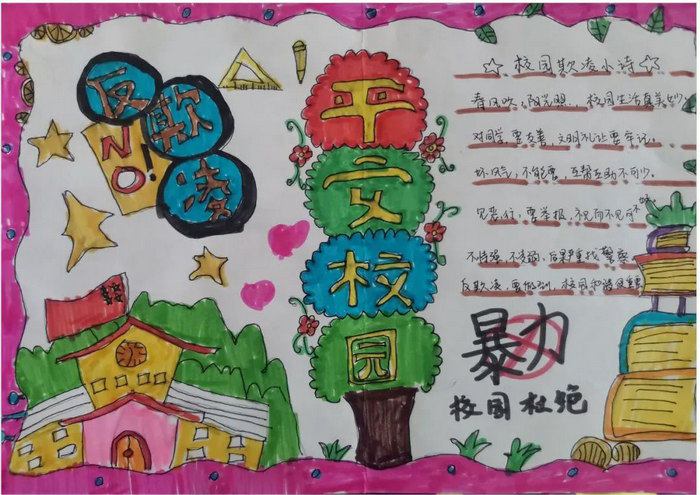 反欺凌
NO!
平安校园
校园欺凌小诗
春风吹,阳光照,校园生活真美妙
对同学,要友善,文明礼让要牢记。
坏风气,不能要,互帮互助不可少。
见恶行,要举报,
不恃强,不凌弱,后果严重找警察
反欺凌,要做到,校园和谐很重要
暴力
校园杜绝